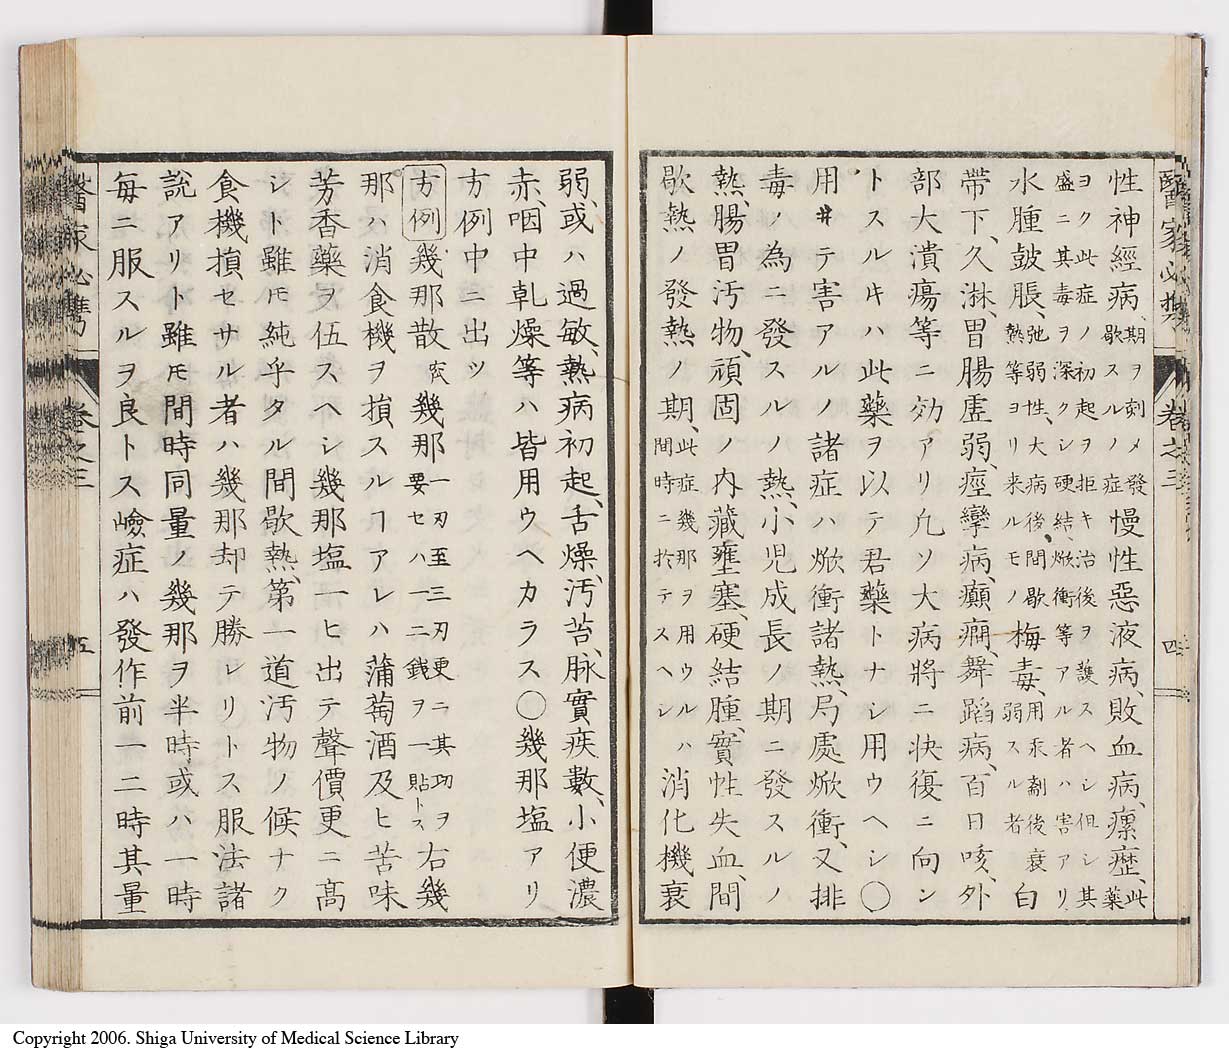 醫家必携
卷之三
四
性神經病、期ヲ刻メ發歇スルノ症慢性惡液病、敗血病、瘰癧、此藥
ヲク此症ノ初起ヲ拒キ治後ヲ護スヘシ但シ其
盛ニ其毒ヲ深クシ硬結、焮衝等アル者ハ害アリ
水腫鼓脹、弛弱性、大病後、間歇熱等ヨリ来ルモノ梅毒、用汞劑後衰弱スル者白
帶下、久淋、胃腸虛弱、痙攣病、癲癇、舞蹈病、百日咳、外
部大潰瘍等ニ効アリ凢ソ大病將ニ快復ニ向ン
トスルキハ此藥ヲ以テ君藥トナシ用ウヘシ〇
用ヰテ害アルノ諸症ハ焮衝諸熱、局處焮衝、又排
毒ノ為ニ發スルノ熱、小児成長ノ期ニ發スルノ
熱、腸胃汚物、頑固ノ内藏壅塞、硬結腫、實性失血、間
歇熱ノ發熱ノ期、此症幾那ヲ用ウルハ間時ニ於テスヘシ消化機衰
弱、或ハ過敏、熱病初起、舌燥、汚苔、脉實疾數、小便濃
赤、咽中乹燥等ハ皆用ウヘカラス〇幾那塩アリ
方例中ニ出ツ
方例 幾那散 幾那一刃至三刃更ニ其功ヲ要セハ一二銭ヲ一貼トス右幾
那ハ消食機ヲ損スルヿアレハ蒲萄酒及ヒ苦味
芳香藥ヲ伍スヘシ幾那塩一ヒ出テ聲價更ニ髙
シト雖モ純乎タル間歇熱、第一道汚物ノ候ナク
食機損セサル者ハ幾那却テ勝レリトス服法諸
説アリト雖モ間時同量ノ幾那ヲ半時、或ハ一時
毎ニ服スルヲ良トス嶮症ハ發作前一二時其量
醫家必携
卷之三
五
Copyright 2006. Shiga University of Medical Science Library